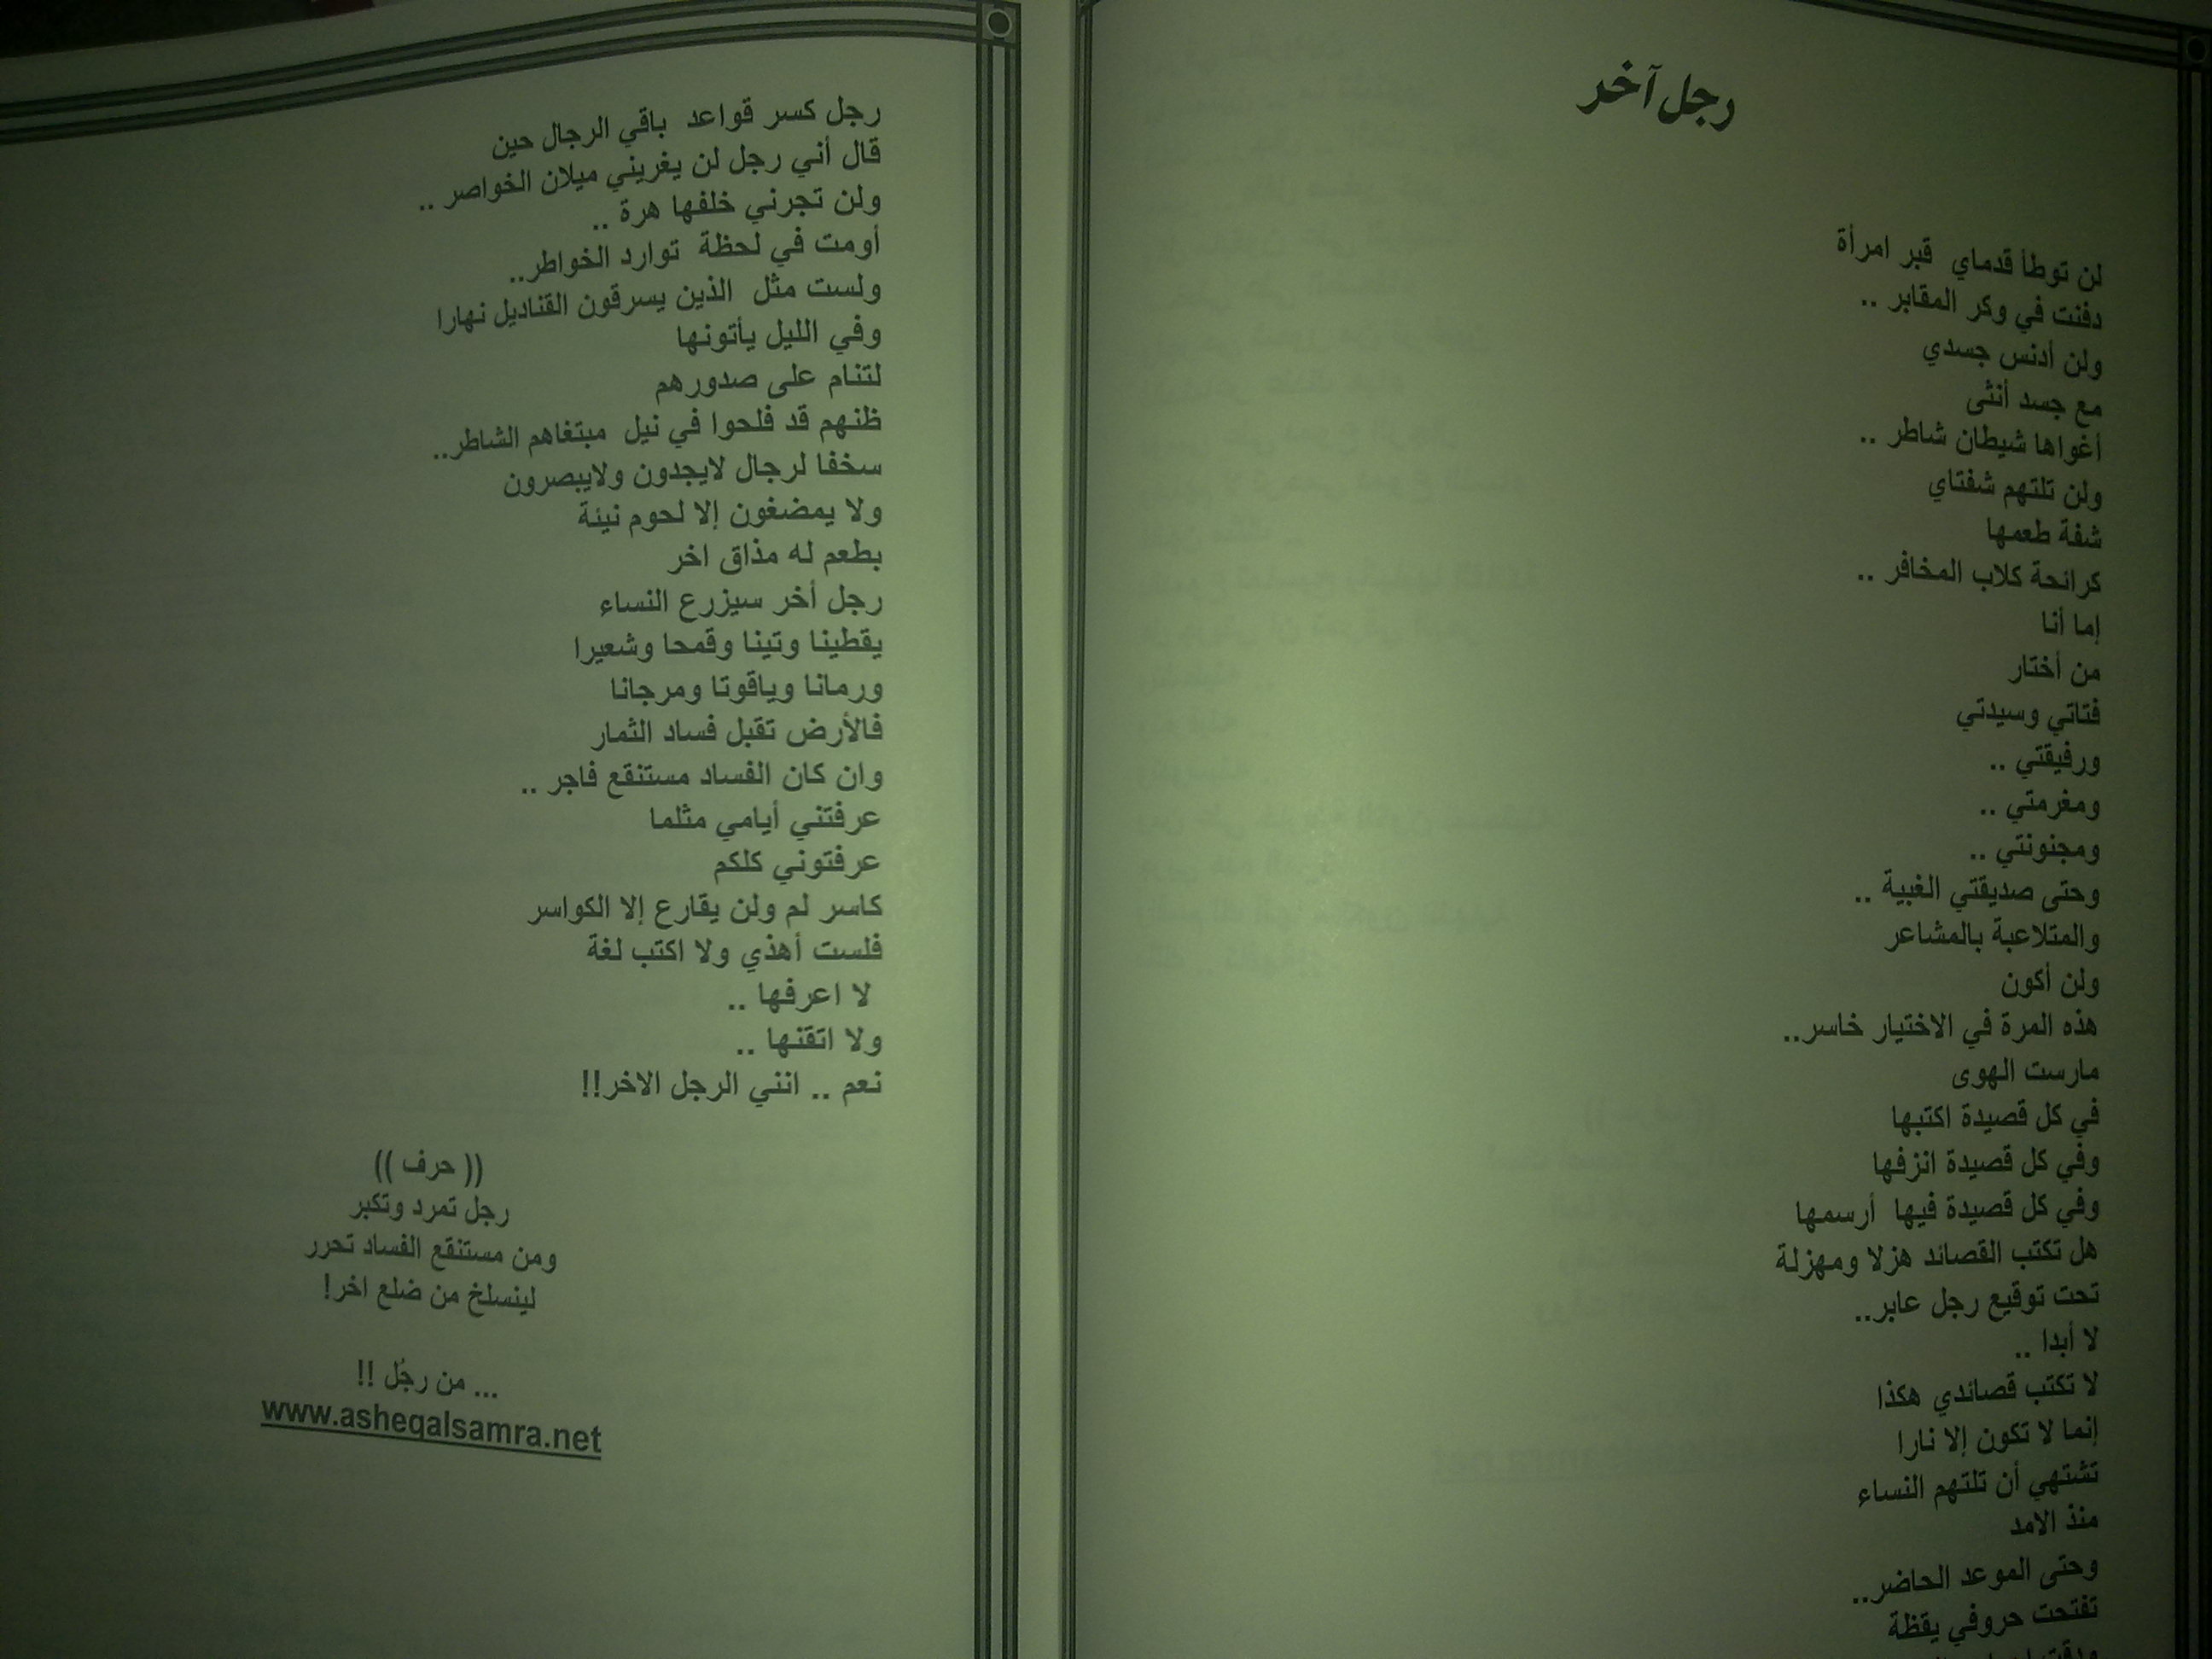 رجل آخر
لن توطأ قدماي قبر امرأة
دفنت في وكر المقابر ..
ولن أدنس جسدي
مع جسد أنثى
أغواها شيطان شاطر ..
ولن تلتهم شفتاي
شفة طعمها
كرائحة كلاب المخافر ..
إما أنا
من أختار
فتاتي وسيدتي
ورفيقتي ..
ومغرمتي ..
ومجنونتي ..
وحتى صديقتي الغبية ..
والمتلاعبة بالمشاعر
ولن أكون
هذه المرة في الاختيار خاسر..
مارست الهوى
في كل قصيدة اكتبها
وفي كل قصيدة انزفها
وفي كل قصيدة فيها أرسمها
هل تكتب القصائد هزلا ومهزلة
تحت توقيع رجل عابر..
لا أبدا ..
لا تكتب قصائدي هكذا
إنما لا تكون إلا نارا
تشتهي أن تلتهم النساء
منذ الامد
وحتى الموعد الحاضر..
تفتحت حروفي يقظة
رجل كسر قواعد باقي الرجال حين
قال أني رجل لن يغريني ميلان الخواصر ..
ولن تجرني خلفها هرة ..
أومت في لحظة توارد الخواطر..
ولست مثل الذين يسرقون القناديل نهارا
وفي الليل يأتونها
لتنام على صدورهم
ظنهم قد فلحوا في نيل مبتغاهم الشاطر..
سخفا لرجال لايجدون ولايبصرون
ولا يمضغون إلا لحوم نيئة
بطعم له مذاق اخر
رجل أخر سيزرع النساء
يقطينا وتينا وقمحا وشعيرا
ورمانا وياقوتا ومرجانا
فالأرض تقبل فساد الثمار
وان كان الفساد مستنقع فاجر ..
عرفتني أيامي مثلما
عرفتوني كلكم
كاسر لم ولن يقارع إلا الكواسر
فلست أهذي ولا اكتب لغة
لا اعرفها ..
ولا اتقنها ..
نعم .. انني الرجل الاخر!!
(( حرف ))
رجل تمرد وتكبر
ومن مستنقع الفساد تحرر
لينسلخ من ضلع اخر!
... من رجُل !!
www.asheqalsamra.net